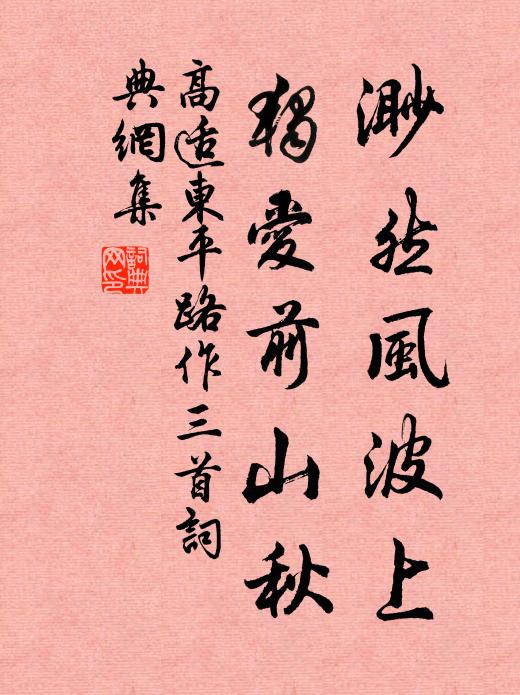 渺然風波上
獨愛前山秋
高适東平路作三首詞
典網集
詞典網印